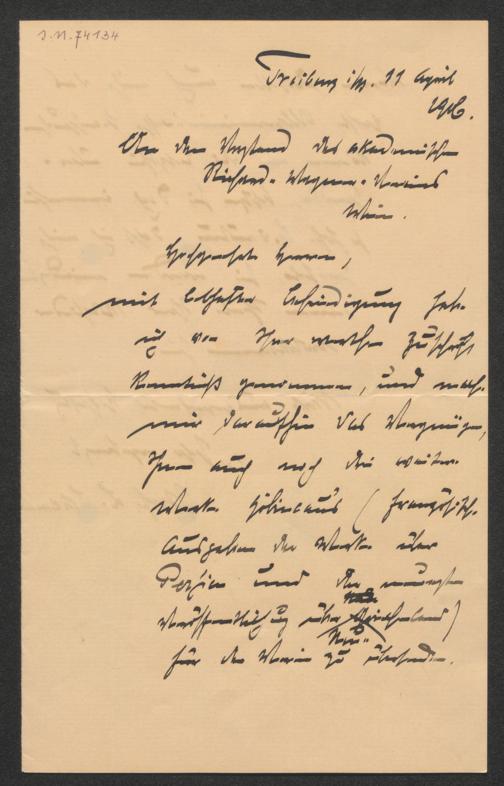 I.N. 74134
Freiburg i/B. 11 April
1906.
An den Vorstand des akademischen
Richard-Wagner-Vereins
Wien.
Hochgeehrte Herren,
mit lebhafter Befriedigung habe
ich von Ihrer werthen Zuschrift
Kenntniß genommen, und mache
mir daraufhin das Vergnügen,
Ihnen auch noch die weiteren
Werke Gobineau's (französische
Ausgaben der Werke über
Persien und der neuesten
Veröffentlichung über Griechenland)
für den Verein zu übersenden.